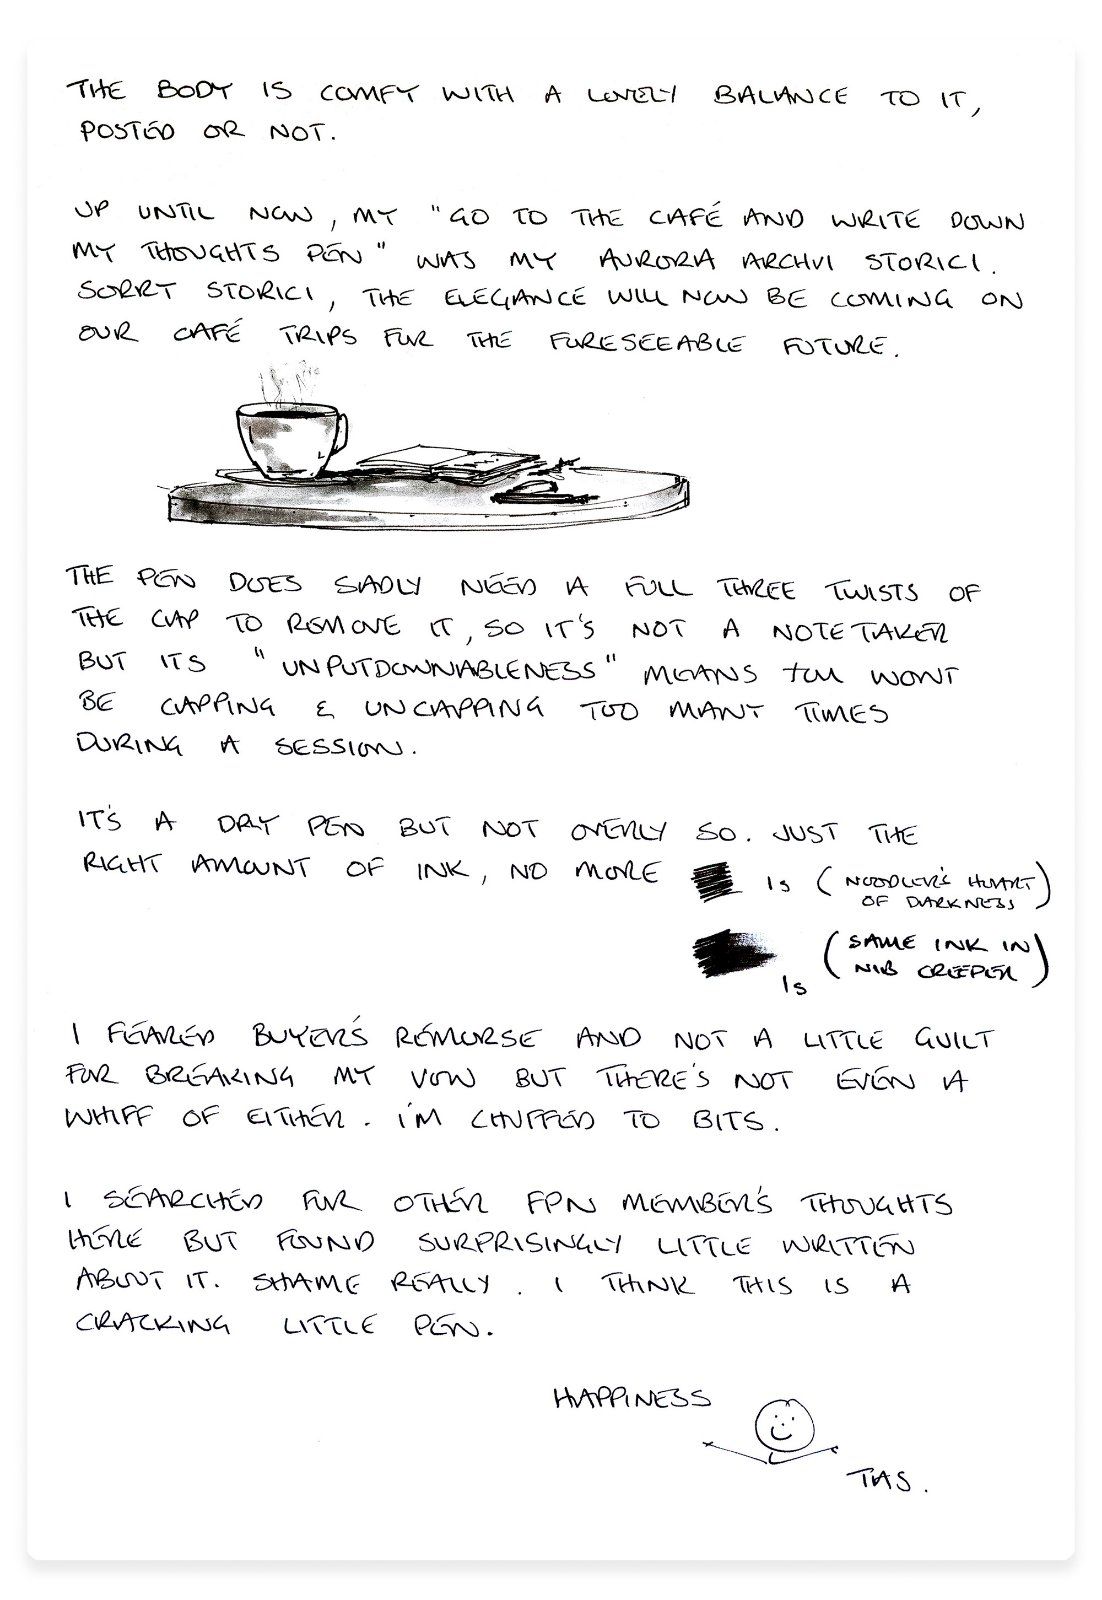 THE BODY IS COMFY WITH A LOVELY BALANCE TO IT,
POSTED OR NOT.
UP UNTIL NOW, MY "GO TO THE CAFÉ AND WRITE DOWN
MY THOUGHTS PEN" WAS MY AURORA ARCHVI STORICI.
SORRY STORICI, THE ELEGANCE WILL NOW BE COMING ON
OUR CAFÉ TRIPS FOR THE FORESEEABLE FUTURE.
THE PEN DOES SADLY NEED A FULL THREE TWISTS OF
THE CAP TO REMOVE IT, SO IT'S NOT A NOTE TAKER
BUT ITS "UNPUTDOWNABLENESS" MEANS YOU WONT
BE CAPPING & UNCAPPING TOO MANY TIMES
DURING A SESSION.
IT'S A DRY PEN BUT NOT OVERLY SO. JUST THE
RIGHT AMOUNT OF INK, NO MORE 1s (NOODLER'S HEART
OF DARKNESS)
1s (SAME INK IN
NIB CREEPER)
I FEARED BUYER'S REMORSE AND NOT A LITTLE GUILT
FOR BREAKING MY VOW BUT THERE'S NOT EVEN A
WHIFF OF EITHER. I'M CHUFFED TO BITS.
I SEARCHED FOR OTHER FPN MEMBER'S THOUGHTS
HERE BUT FOUND SURPRISINGLY LITTLE WRITTEN
ABOUT IT. SHAME REALLY. I THINK THIS IS A
CRACKING LITTLE PEN.
HAPPINESS
TAS.